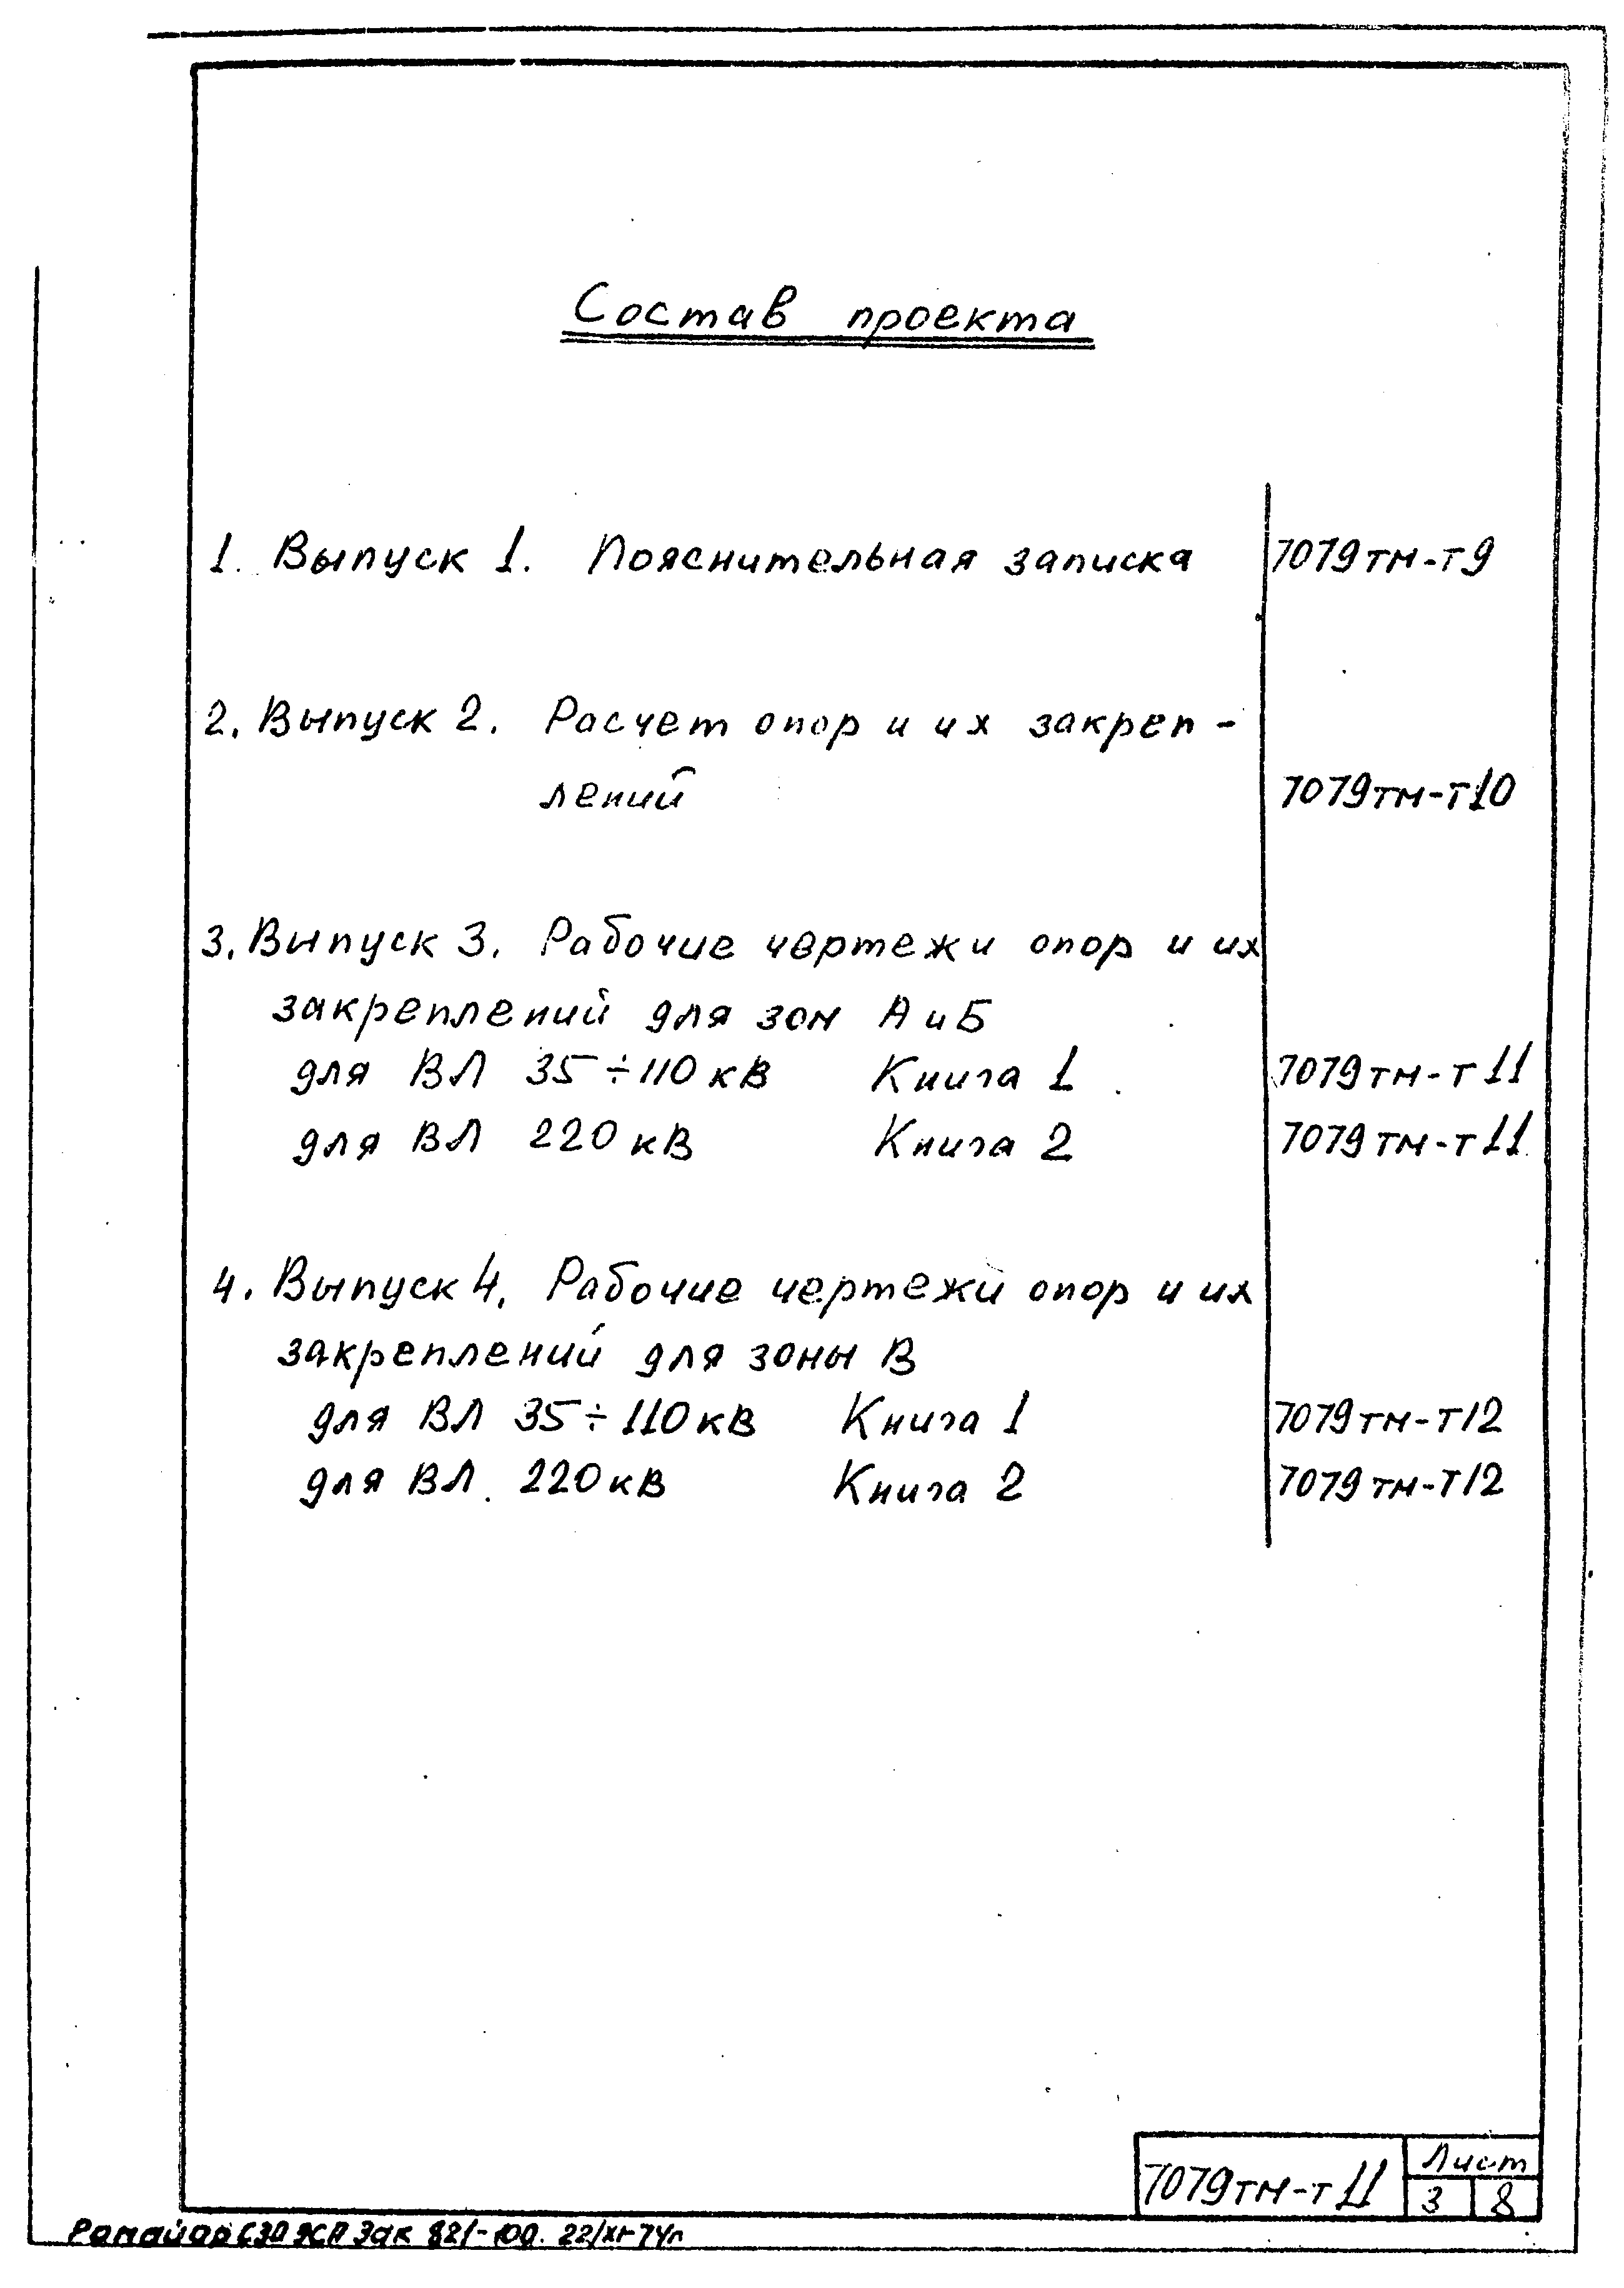 Состав проекта
1. Выпуск 1. Пояснительная записка 7079тм-т9
2. Выпуск 2. Расчет опор и их закреп-
лений 7079тм-т10
3. Выпуск 3. Рабочие чертежи опор и их
закреплений для зон А и Б
для ВЛ 35÷110 кВ Книга 1 7079тм-т11
для ВЛ 220 кВ Книга 2 7079тм-т11
4. Выпуск 4. Рабочие чертежи опор и их
закреплений для зоны В
для ВЛ 35÷110 кВ Книга 1 7079тм-т12
для ВЛ 220 кВ Книга 2 7079тм-т12
7079тм-т11 Лист
3 8
СЗО ЭСП Зак 821-100. 22/XI-74г